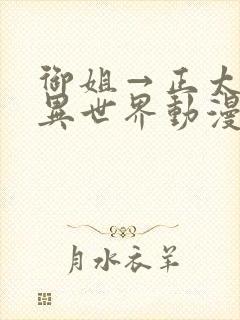 御姐→正太
異世界動漫
月水衣羊